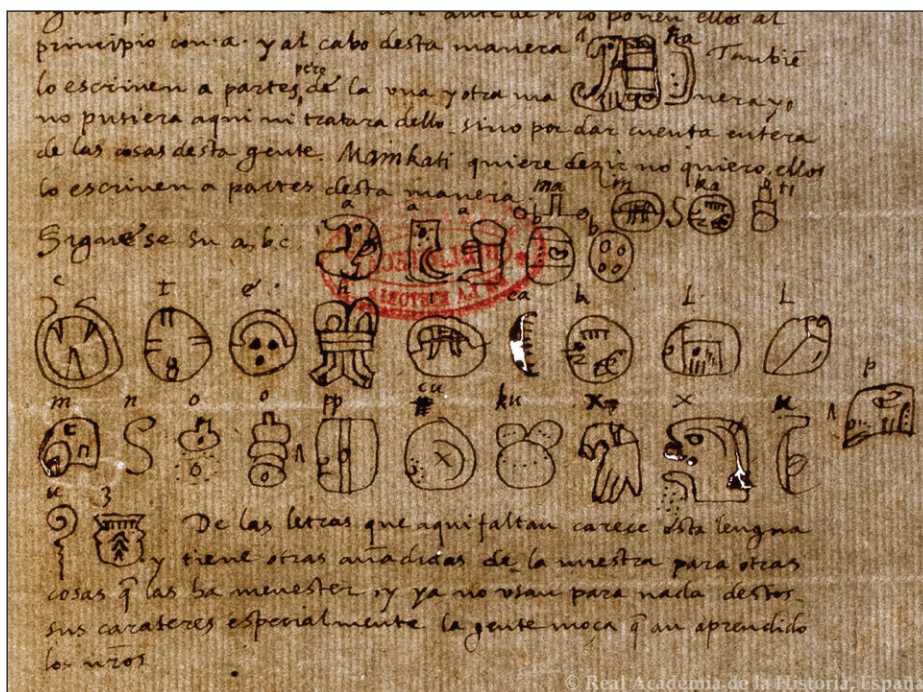 ponen ellos al
principio con .a. y al cabo desta manera ha Tanbiē
lo escriven a partes, pero de la vna y otra ma nera yo
no pusiera aqui ni tratara dello sino por dar cuenta entera
de las cosas desta gente. Mainkati quiere dezir no quiero, ellos
lo escriven a partes desta manera. ma i n ka ti
Siguese su a, b, c. a a a b b
c t e h i ca k L L
m n o o pp cu ku x x u p
u z
De las letras que aqui faltan carece esta lengua
y tiene otras añadidas de la nuestra para otras
cosas q̄ las ha menester, y ya no vsan para nada destos
sus carateres especialmente la gente moça q̄ an aprendido
los nr̄os
© Real Academia de la Historia, España